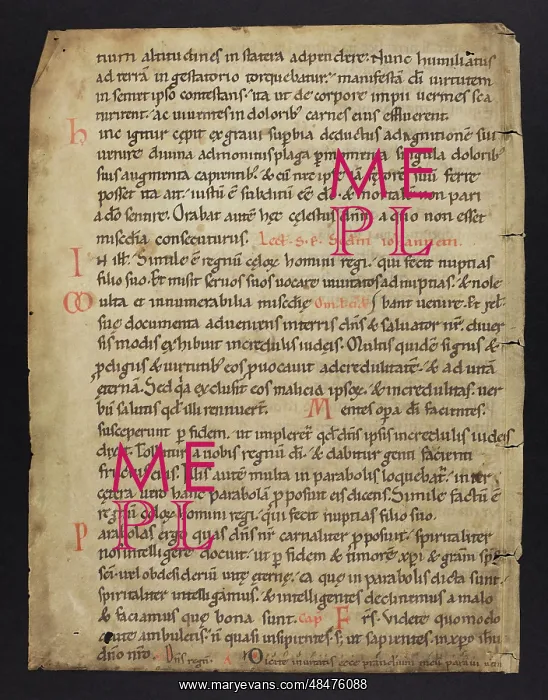 tium altitudines in statera adpendere. Nunc humiliatus
ad terrā in gestatorio torquebatur. manifestā dī uirtutem
in semet ipso contestans. ita ut de corpore impii uermes sca
turirent. ac uiuentes in dolorib; carnes eius effluerent.
hinc igitur cępit ex graui supbia deductus ad agnitionē sui
uenire diuina admonitus plaga singula dolorib;
suis augmenta capientib; & cū nec ipse suū ferre
posset ita ait. iustū ē subditū eē do & mortalē non pari
a do sentire. Orabat autē hęc dnm a quo non esset
misedia consecuturus.
IN illt. Simile ē regnū celoꝝ homini regi. qui fecit nuptias
filio suo. Et misit seruos suos uocare inuitatos ad nuptias. & nole
bant uenire. Et rel
Multa et innumerabilia misedie
sue documenta adueniens in terris dns & saluator nr. diuer
sis modis exhibuit incredulis iudeis. Multis quidē signis &
pdigiis & uirtutib; eos puocauit ad credulitatē. & ad uitā
eternā. Sed qa exclusit eos malicia ipsoꝝ. & incredulitas. uer
bū salutis qd illi rennuerт. Mentes opa dī facientes.
susceperunt p fidem. ut impleret qd dns ipsis incredulis iudeis
dixit. Tolletur a uobis regnū dī. & dabitur genti facienti
fructus eius. autē multa in parabolis loquebat. inter
cetera uero hanc parabolā pposuit eis dicens. Simile factū ē
regnū celoꝝ homini regi. qui fecit nuptias filio suo.
Parabolas ergo quas dns nr carnaliter pposuit. spiritaliter
nos intelligere docuit. ut p fidem & timorē xpi & gram spi
sci. uel ob desideriū uitę eternę. ea que in parabolis dicta sunt.
spiritaliter intelligamus. & intelligentes declinemus a malo
& faciamus que bona sunt. cap Frs. Videte quomodo
caute ambuletis. n quasi insipientes. s; ut sapientes. in xpo ihu
dno nro.
ME
PL
ME
PL
www.maryevans.com/48476088